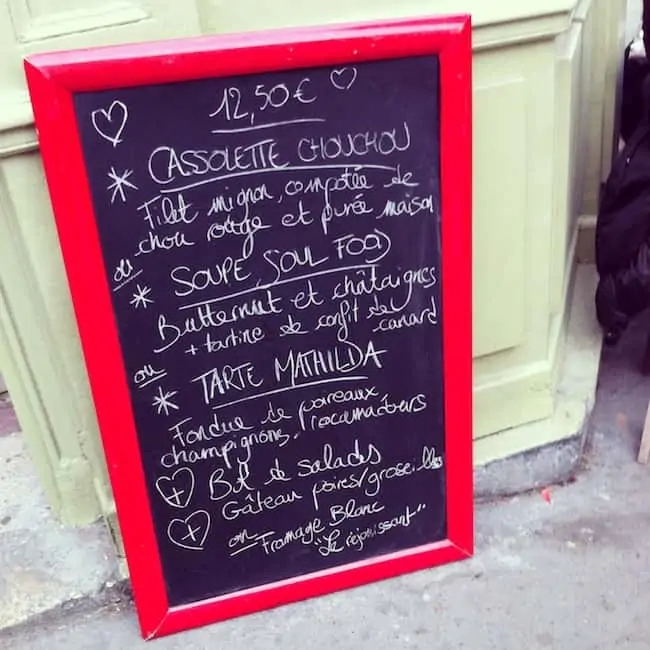 12,50 €
* CASSOLETTE CHOUCHOU
Filet mignon, compotée de
chou rouge et purée maison
ou
* SOUPE SOUL FOOD
Butternut et châtaignes
+ tartine de confit de
canard
ou
* TARTE MATHILDA
Fondue de poireaux
champignons, rocamadours
+ Bol de salades
+ Gâteau poires/groseilles
ou Fromage Blanc
"Le réjouissant"